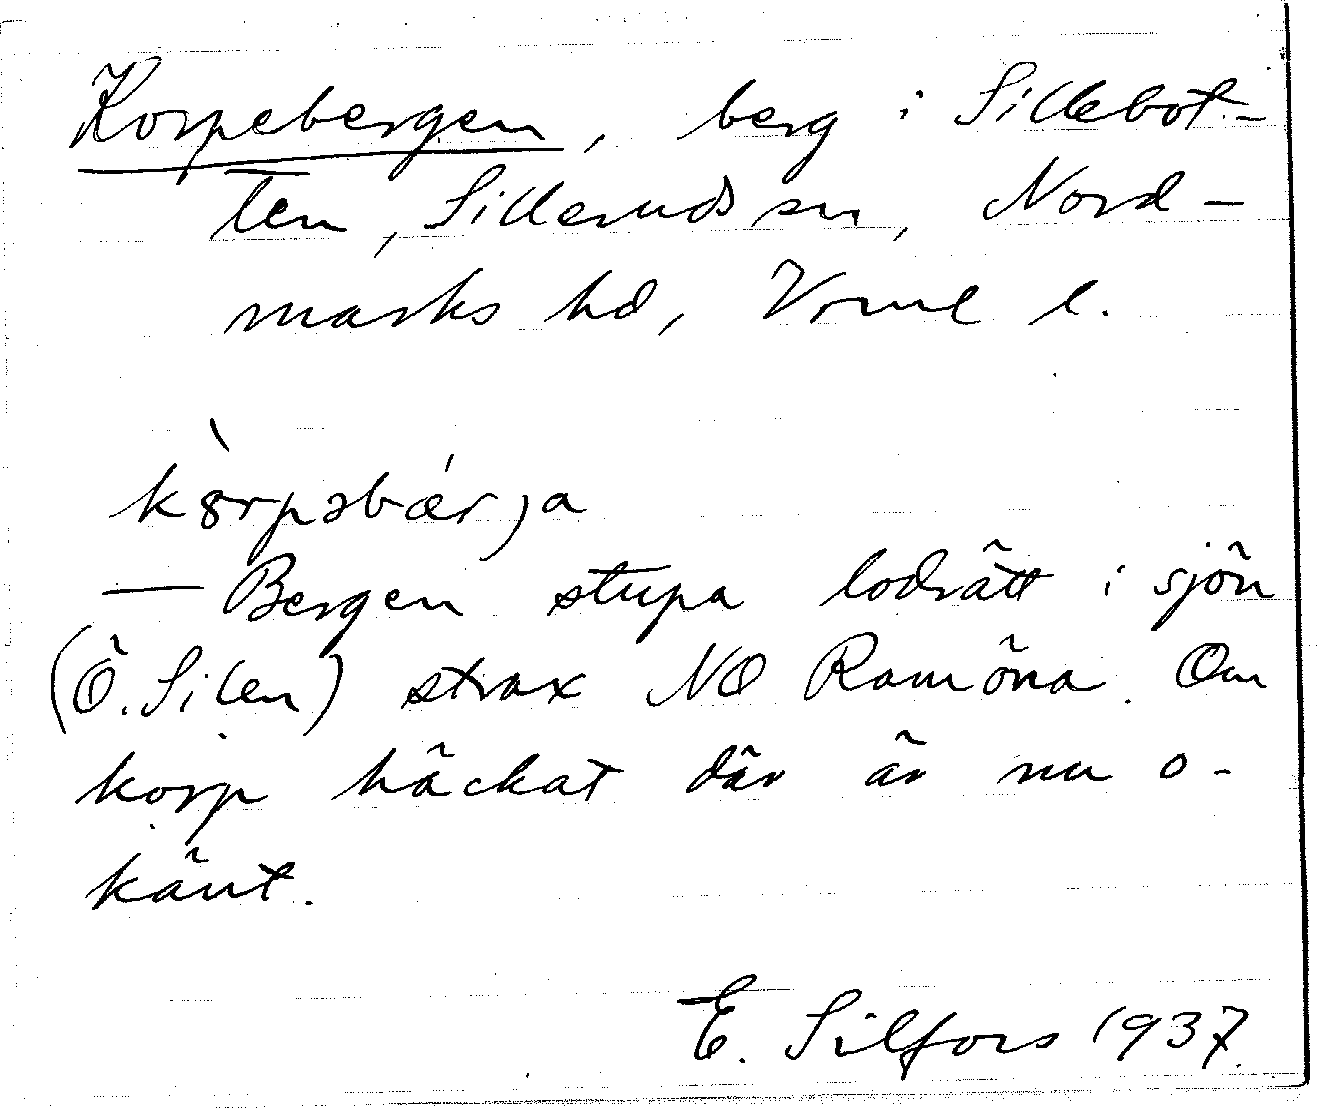 Korpebergen, berg i Sillebot-
ten, Silleruds sn, Nord-
marks hd, Vrml l.
kɔ̀rpəbǽrja
— Bergen stupa lodrätt i sjön
(Ö. Silen) strax NO Ramöna. Om
korp häckat där är nu o-
känt.
E. Silfors 1937.